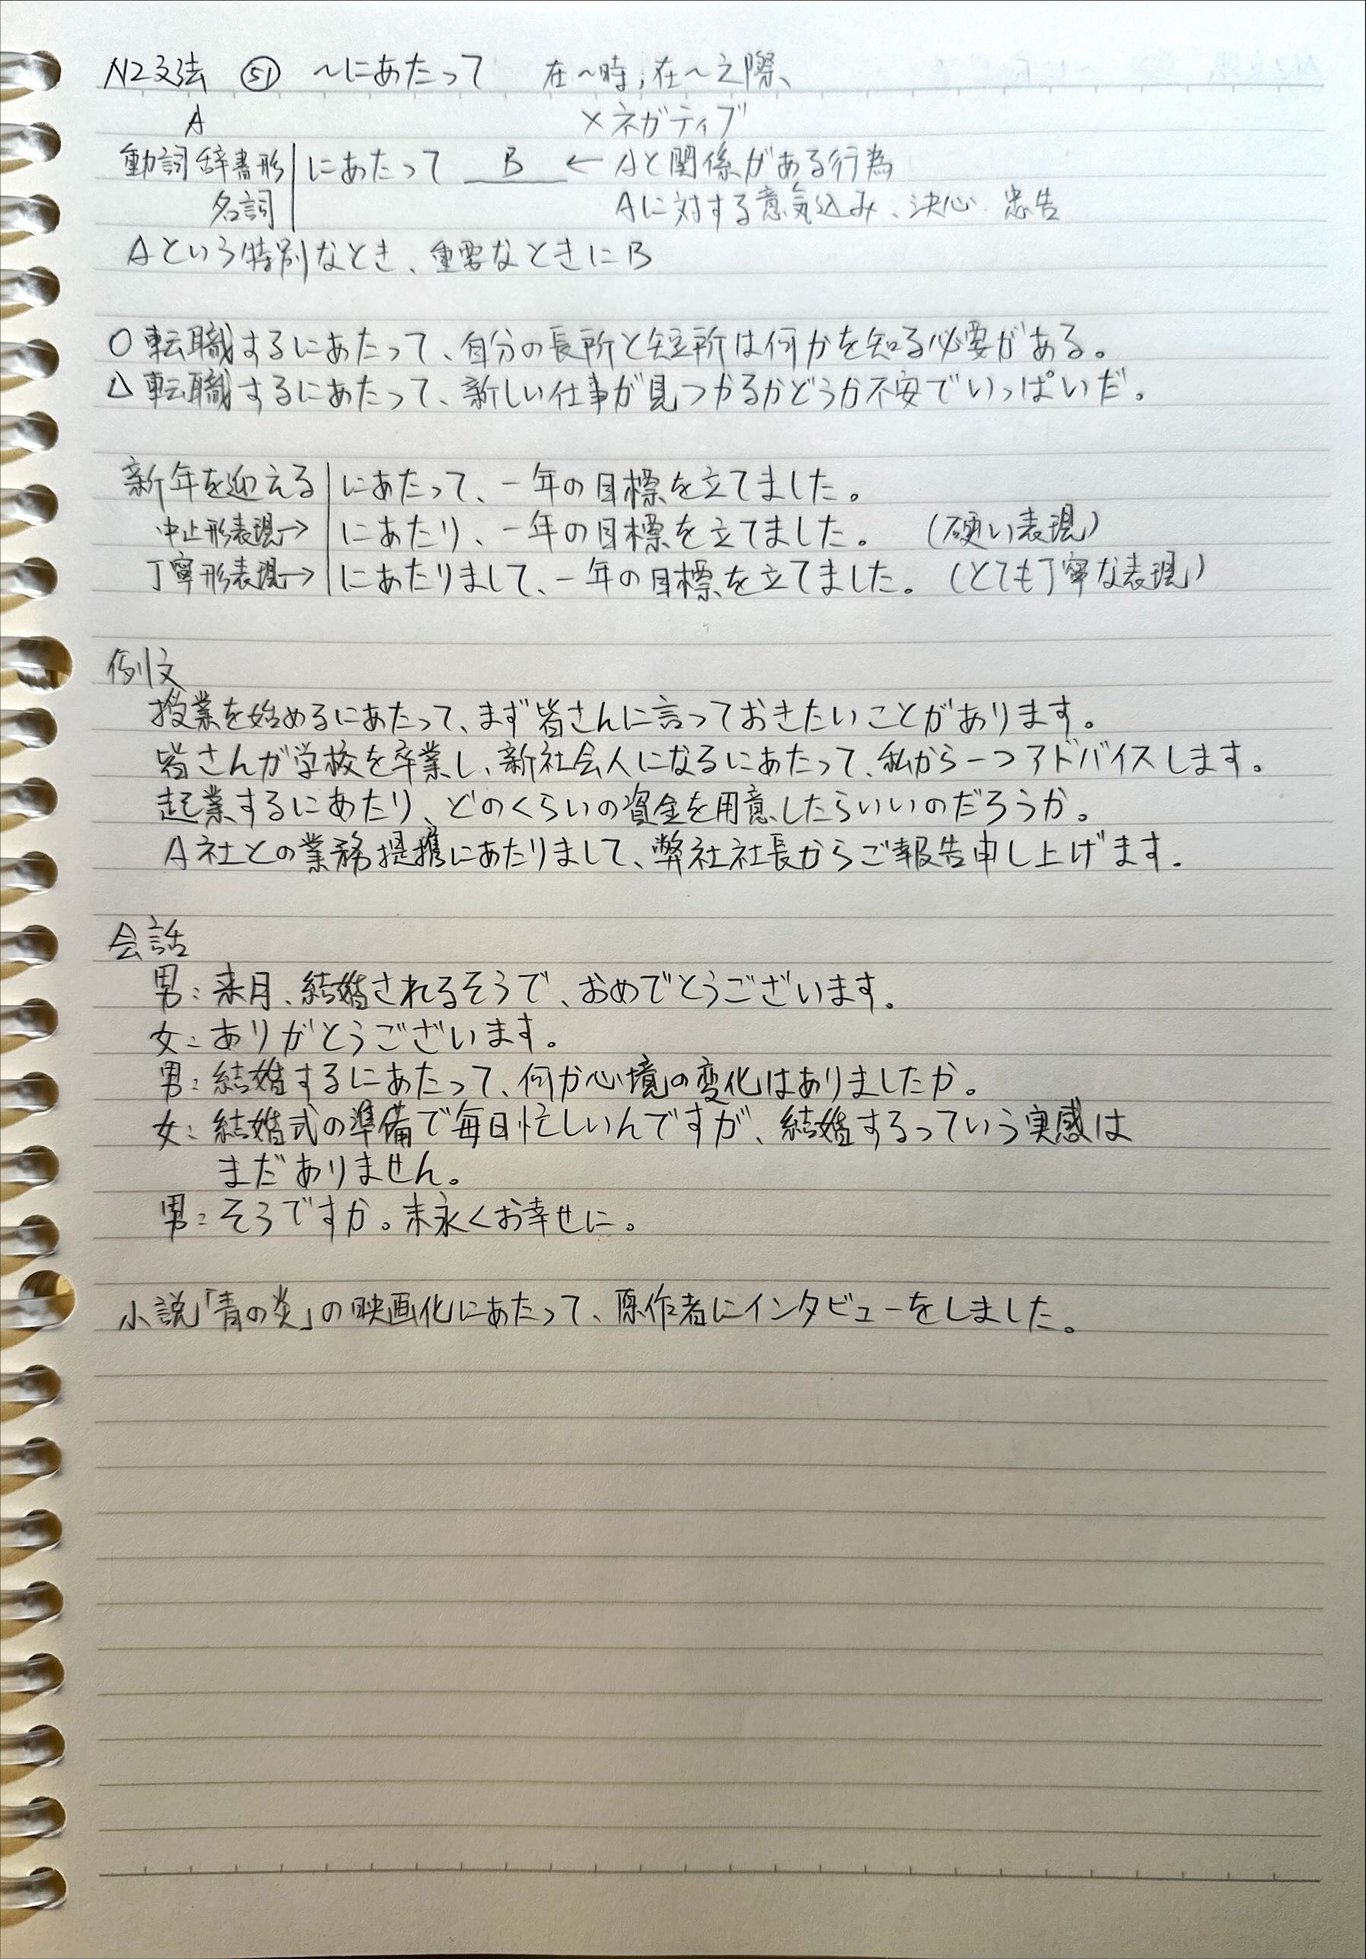 N2文法 ㊿① ～にあたって 在～時，在～之際、
A ×ネガティブ
動詞辞書形 にあたって B ← Aと関係がある行為
名詞 Aに対する意気込み、決心、忠告
Aという特別なとき、重要なときにB
○転職するにあたって、自分の長所と短所は何かを知る必要がある。
△転職するにあたって、新しい仕事が見つかるかどうか不安でいっぱいだ。
新年を迎える にあたって、一年の目標を立てました。
中止形表現→ にあたり、一年の目標を立てました。 （硬い表現）
丁寧形表現→ にあたりまして、一年の目標を立てました。（とても丁寧な表現）
例文
授業を始めるにあたって、まず皆さんに言っておきたいことがあります。
皆さんが学校を卒業し、新社会人になるにあたって、私から一つアドバイスします。
起業するにあたり、どのくらいの資金を用意したらいいのだろうか。
A社との業務提携にあたりまして、弊社社長からご報告申し上げます。
会話
男：来月、結婚されるそうで、おめでとうございます。
女：ありがとうございます。
男：結婚するにあたって、何か心境の変化はありましたか。
女：結婚式の準備で毎日忙しいんですが、結婚するっていう実感は
まだありません。
男：そうですか。末永くお幸せに。
小説「青の炎」の映画化にあたって、原作者にインタビューをしました。